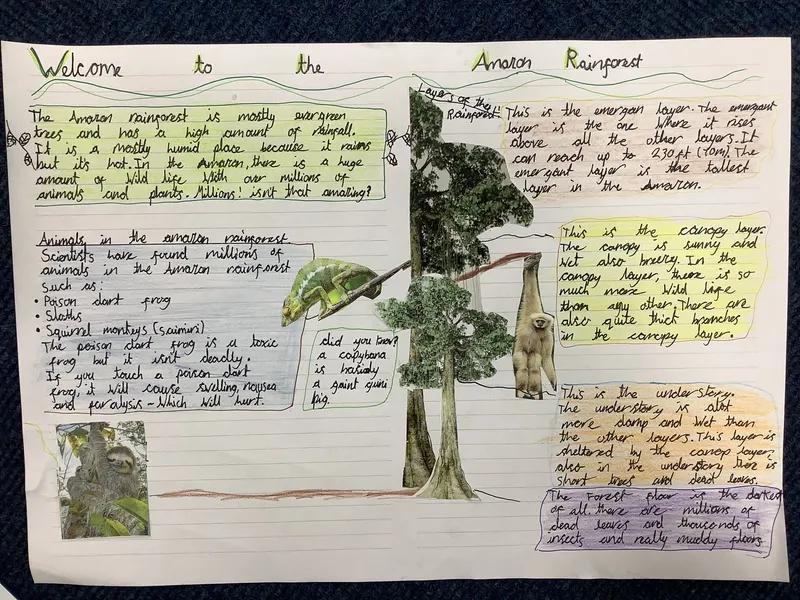 Welcome to the Amazon Rainforest
The Amazon rainforest is mostly evergreen
trees and has a high amount of rainfall.
It is a mostly humid place because it rains
but it's hot. In the Amazon, there is a huge
amount of wild life with over millions of
animals and plants. Millions! isn't that amazing?
Animals in the amazon rainforest
Scientists have found millions of
animals in the Amazon rainforest
such as:
• Poison dart frog
• Sloths
• Squirrel monkeys (saimiri)
The poison dart frog is a toxic
frog but it isn't deadly.
If you touch a poison dart
frog, it will cause swelling, nausea
and paralysis - which will hurt.
did you know?
a capybara
is basicly
a gaint guni
pig.
Layers of the
Rainforest!
This is the emergan layer. The emergant
layer is the one where it rises
above all the other layers. It
can reach up to 230ft (70m). The
emergant layer is the tallest
layer in the Amazon.
This is the canopy layer.
The canopy is sunny and
wet also breezy. In the
canopy layer, there is so
much more wild life
than any other. There are
also quite thick branches
in the canopy layer.
This is the understory.
The understory is alot
more damp and wet than
the other layers. This layer is
sheltered by the canop layer,
also in the understory there is
short trees and dead leaves.
The forest floor is the darkest
of all. there are millions of
dead leaves and thousends of
insects and really muddy floors